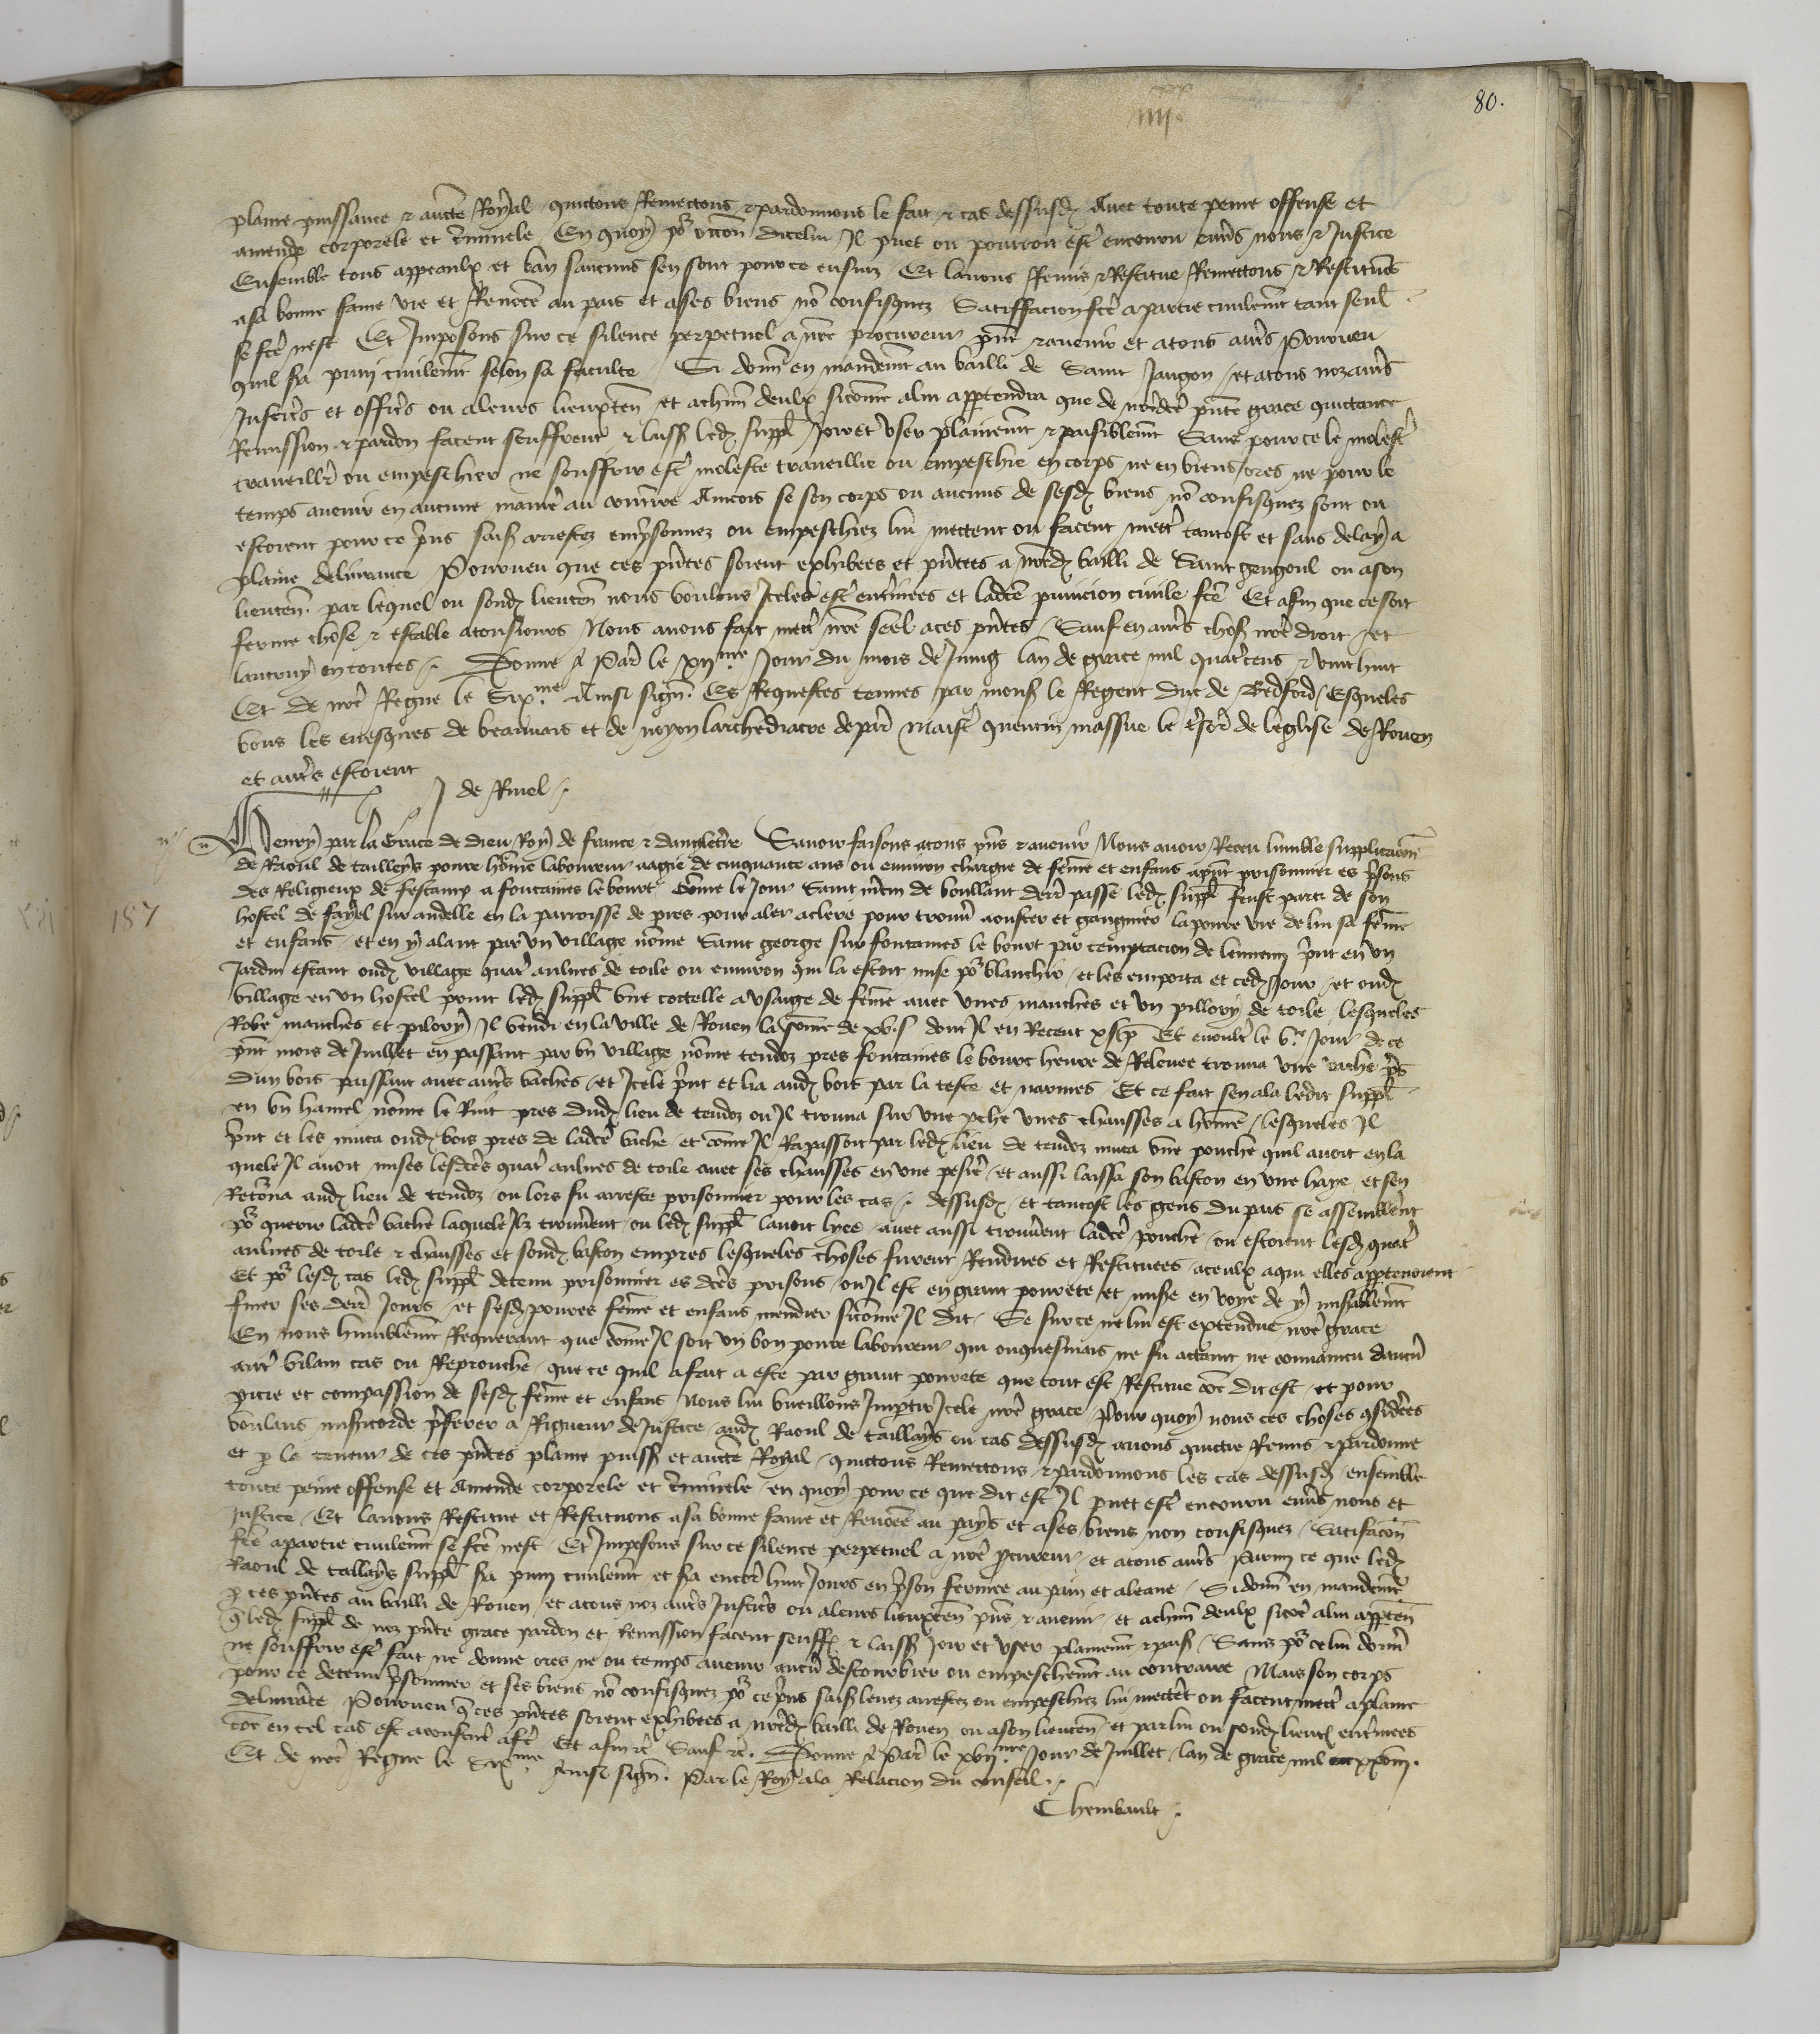 80.
IIII xx
plaine puissance et aucte Royal quictons Remectons et pardonnons le fait et cas dessusd Avec toute peine offense et
amende corporele et criminele En quoy po occon dicelui Il puet ou pourroit estre encouru envers nous et Justice
Ensemble tous appeaulx et ban saucuns sen sont pour ce ensuiz Et lavons Remis et Restitue Remectons et Restituons
a sa bonne fame vie et Renomee au pais et a ses biens no confisquez Satiffacion fce a partie civilemt tant seul
se fce nest Et Imposons sur ce silence perpetuel a nre procureur pnt et avenir et a tous autres Pourveu
quil sa puni civilemt selon sa faculte Si donn en mandemt au bailli de Saint Jangon et a tous noz autres
Justiciers et officiers ou a leurs lieuxten et a chun deulx sicomme a lui appartendra que de nredce pnte grace quictance
Remission et pardon facent seuffrent et laiss led suppl Joir et user plainemt et paisiblemt Sans pour ce le molester
traveillier ou empeschier ne souffrir estre moleste traveillie ou empeschie en corps ne en biens ores ne pour le
temps avenir en aucune maniere au contraire Aincois se son corps ou aucuns de sesd biens no confisquez sont ou
estoient pour ce prins saisis arrestez emprisonnez ou empeschiez lui mettent ou facent mettre tantost et sans delay a
plaine delivrance Pourveu que ces pntes soient exhibees et pntees a nred bailli de Saint gengoul ou a son
lieuten par lequel ou sond lieuten nous voulons Iceles estre enterinees et ladce punicion civile fce Et afin que ce soit
ferme chose et estable a tousjours Nous avons fait mettre nre seel a ces pntes Sauf en autres choses nre droit et
lautruy en toutes Donne a Paris le xiime Jour du mois de Juing lan de grace mil quatrecens et vint huit
Et de nre Regne le Sixme Ainsi sign Es Requestes tenues par mons le Regent duc de Bedford Esqueles
vous les evesques de beauvais et de noyon larchediacre de paris Maistre quentin massue le tresor de leglise de Rouen
et autres estoient
J de Rivel
187
Henry par la Grace de dieu Roy de france et dangleterre Savoir faisons a tous pns et avenir Nous avoir Receu lumble supplicacion
de Raoul de tailleys povre homme laboureur aagie de cinquante ans ou environ chargie de femme et enfans a pnt prisonnier es prisons
des Religieux de fescamp a fontaines le bourt Comme le Jour Saint mtin de boullant derr passe led suppl feust parti de son
hostel de fayel sur andelle en la parroisse de pres pour aler a clere pour trouver aouster et gaingnier la povre vie de lui sa femme
et enfans et en y alant par un village nomme Saint george sur fontaines le bourt par temptacion de lennemi print en un
Jardin estant oud village quatre aulnes de toile ou environ qui la estoit mise po blanchir et les emporta et ced Jour et oud
village en un hostel print led suppl une cottelle a usaige de femme avec unes manches et un pillory de toile lesqueles
Robe manches et pilory Il vendi en la ville de Rouen la somme de xv s dont Il en Receut x s p Et en oultre le ve Jour de ce
pnt mois de Juillet en passant par un village nomme tendoz pres fontaines le bourt heure de Relevee trouva une vache pres
dun bois paissant avec autres vaches et Icele print et lia aud bois par la teste et narines Et ce fait sen ala ledit suppl
en un hamel nomme le Rut pres dud lieu de tendoz ou Il trouva sur une perche unes chausses a homme lesqueles Il
print et les muca oud bois pres de ladce vache et comme Il Rapassoit par led lieu de tendoz muca une pouche quil avoit en la
quele Il avoit mises lesdces quatre aulnes de toile avec ses chausses en une pesiere et aussi laissa son baston en une haye et sen
Retorna aud lieu de tendoz ou lors fu arreste prisonnier pour les cas dessusd et tantost les gens du pais se assemblerent
po querir ladce vache laquele Ilz trouverent ou led suppl lavoit lyee avec aussi trouverent ladce pouche ou estoient lesd quatre
aulnes de toile et chausses et sond baston empres lesqueles choses furent Rendues et Restituees a ceulx a qui elles appartenoient
Et po lesd cas led suppl detenu prisonnier es dces prisons ou Il est en grant povrete et mise en voye de y miserablemt
finer ses derr Jours et sesd povres femme et enfans mendier sicomme Il dit Se sur ce ne lui est extendue nre grace
En nous humblemt Requerant que comme Il soit un bon povre laboureur qui onquesmais ne fu attaint ne convaincu daucun
autre vilain cas ou Reprouche que ce quil a fait a este par grant povrete que tout est Restitue comme dit est et pour
pitie et compassion de sesd femme et enfans Nous lui vueillons Impartir Icele nre grace Pour quoy nous ces choses considerees
voulans misericorde preferer a Rigueur de Justice aud Raoul de taillays ou cas dessusd avons quictie Remis et pardonne
et par la teneur de ces pntes plaine puiss et aucte Royal quictons Remectons et pardonnons les cas dessusd ensemble
toute peine offense et Amende corporele et criminele en quoy pour ce que dit est Il puet estre encouru envers nous et
Justice Et lavons Restitue et Restituons a sa bonne fame et Renomee au pays et a ses biens non confisquez Satifacion
fce a partie civilemt se fce nest Et Imposons sur ce silence perpetuel a nre procureur et a tous autres Parmi ce que led
Raoul de tallays suppl sa puni civilemt et sa encore huit Jours en prison fermee au pain et a leaue Si donn en mandemt
par ces pntes au bailli de Rouen et a tous noz autres Justiciers ou a leurs lieuxten pns et avenir et a chun deulx sicomme a lui apparten
que led suppl de noz pnte grace pardon et Remission facent seuffr et laiss Joir et user plainemt et pais Sans po ce lui donner
ne souffrir estre fait ne donne ores ne ou temps avenir aucun destourbier ou empeschemt au contraire Mais son corps
pour ce detenu prisonnier et ses biens no confisquez po ce prins saisis levez arrestez ou empeschiez lui mettent ou facent mettre a plaine
delivrance Pourveu que ces pntes soient exhibees a nred bailli de Rouen ou a son lieuten et par lui ou sond lieuten enterinees
comme en tel cas est a Et afin etc Sauf etc Donne a Paris le xviime Jour de Juillet lan de grace mil
Et de nre Regne le Sixme Ainsi sign Par le Roy a la Relacion du conseil
Chembault